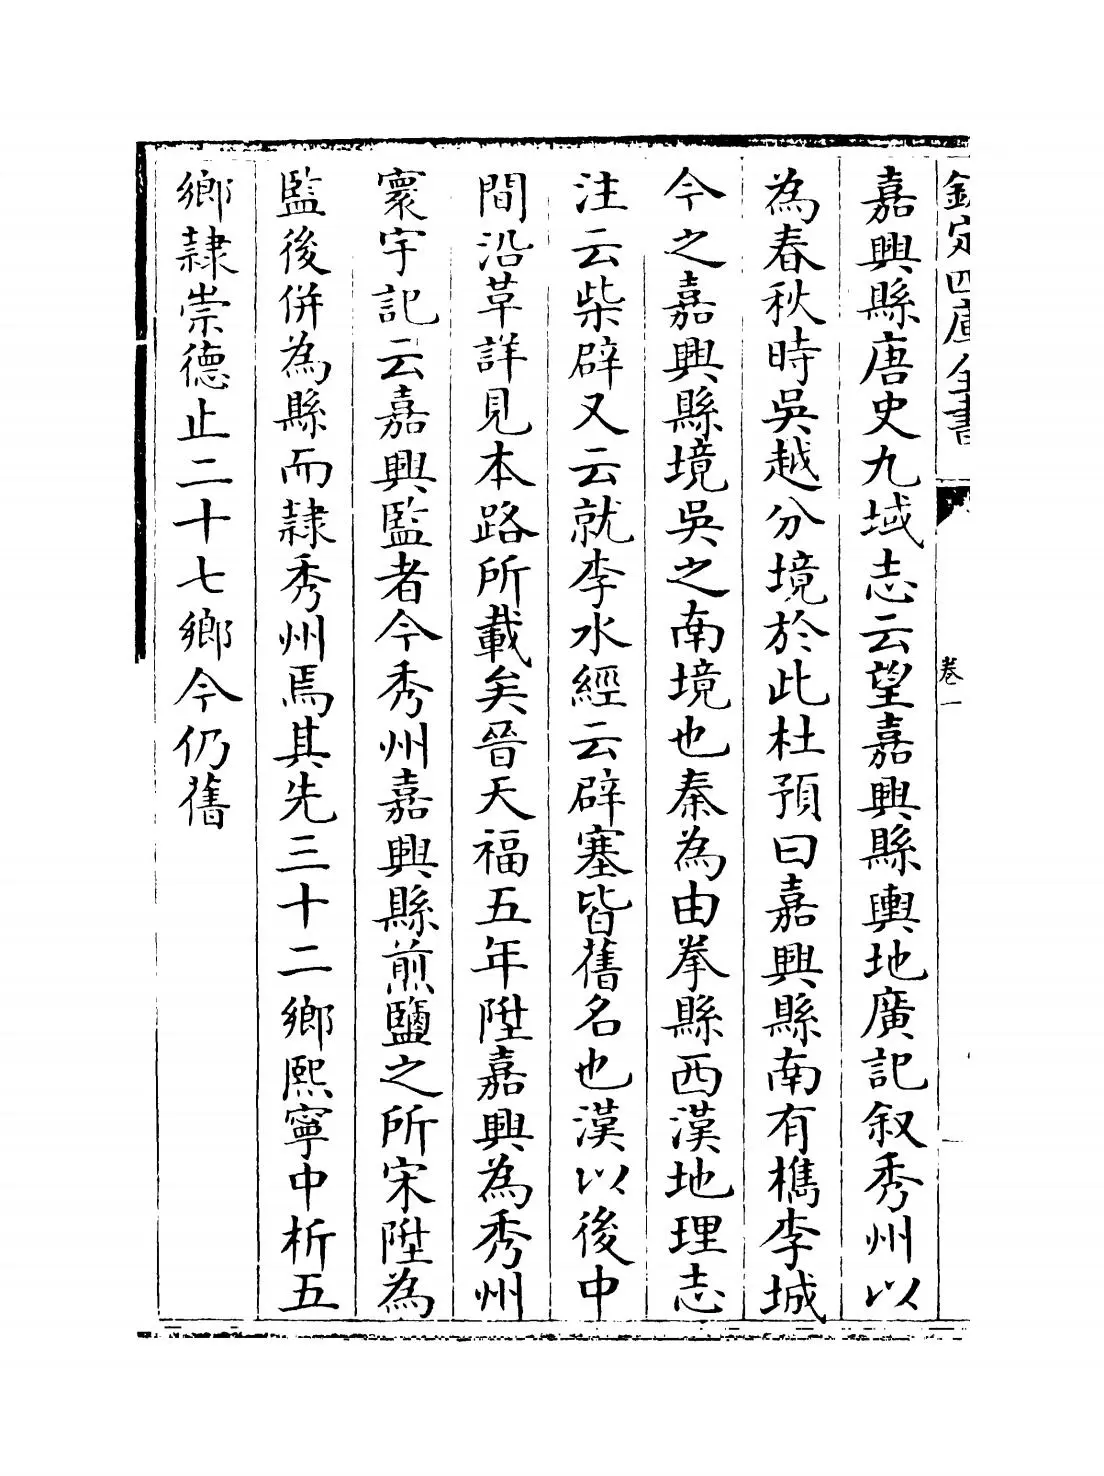 欽定四庫全書
卷一
嘉興縣唐史九域志云望嘉興縣輿地廣記叙秀州以
為春秋時吳越分境於此杜預曰嘉興縣南有檇李城
今之嘉興縣境吳之南境也秦為由拳縣西漢地理志
注云柴辟又云就李水經云辟塞皆舊名也漢以後中
間沿革詳見本路所載矣晉天福五年陞嘉興為秀州
寰宇記云嘉興監者今秀州嘉興縣煎鹽之所宋陞為
監後併為縣而隷秀州焉其先三十二鄉熙寧中析五
鄉隷崇德止二十七鄉今仍舊